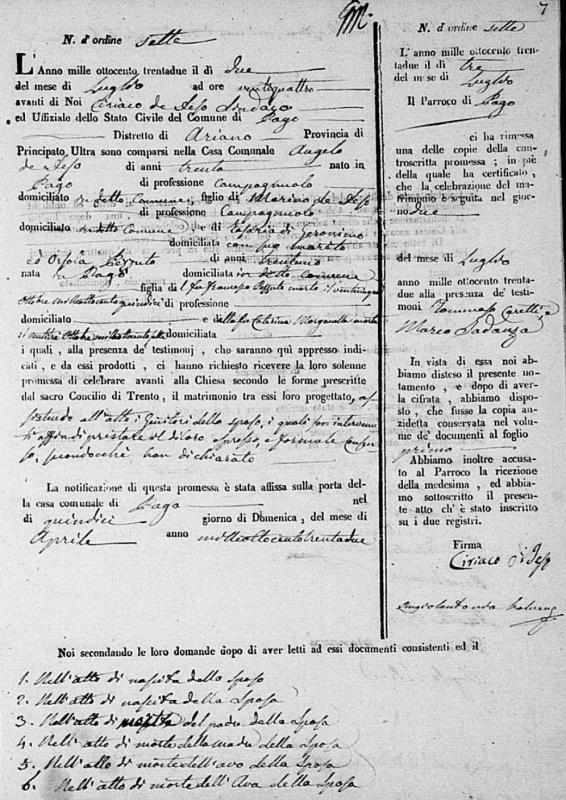 7
N. d'ordine sette
L'Anno mille ottocento trentadue il dì due
del mese di Luglio ad ore ventiquattro
avanti di Noi Ciriaco de Jeso Sindaco
ed Uffiziale dello Stato Civile del Comune di Pago
Distretto di Ariano Provincia di
Principato Ultra sono comparsi nella Casa Comunale Angelo
de Jeso di anni trenta nato in
Pago di professione Campagnuolo
domiciliato in detto Comune, figlio di Marino de Jeso
di professione Campagnuolo
domiciliato in detto Comune, e di Eufemia di Geronimo
domiciliata con suo marito
ed Orsola di anni
nata in Pago domiciliata in detto Comune
figlia di fu Francesco morto il
Ottobre mille ottocento quindici di professione
domiciliato e della fu Caterina morta
il Ottobre mille ottocento domiciliata
i quali, alla presenza de' testimonj, che saranno quì appresso indi-
cati, e da essi prodotti, ci hanno richiesto ricevere la loro solenne
promessa di celebrare avanti alla Chiesa secondo le forme prescritte
dal sacro Concilio di Trento, il matrimonio tra essi loro progettato,
all'atto i Genitori dello sposo, i quali son intervenu-
ti affin di prestare il di loro espresso, e formale consen-
so, secondocchè han dichiarato
La notificazione di questa promessa è stata affissa sulla porta del-
la casa comunale di Pago nel
dì quindici giorno di Domenica, del mese di
Aprile anno mille ottocento trentadue
N. d'ordine sette
L'anno mille ottocento tren-
tadue il dì tre
del mese di Luglio
Il Parroco di Pago
ci ha rimessa
una delle copie della con-
troscritta promessa; in piè
della quale ha certificato,
che la celebrazione del ma-
trimonio è seguita nel gior-
no due
del mese di Luglio
anno mille ottocento trenta-
due alla presenza de' testi-
moni Tommaso e
Marco
In vista di essa noi ab-
biamo disteso il presente no-
tamento, e dopo di aver-
la cifrata, abbiamo dispo-
sto, che fusse la copia an-
zidetta conservata nel volu-
me de' documenti al foglio
primo
Abbiamo inoltre accusa-
to al Parroco la ricezione
della medesima, ed abbia-
mo sottoscritto il presen-
te atto ch' è stato inscritto
su i due registri.
Firma
Ciriaco di Jeso
Noi secondando le loro domande dopo di aver letti ad essi documenti consistenti ed il
1. Nell'atto di nascita dello Sposo
2. Nell'atto di nascita della Sposa
3. Nell'atto di del padre della Sposa
4. Nell'atto di morte della madre della Sposa
5. Nell'atto di morte dell'avo della Sposa
6. Nell'atto di morte dell'Ava della Sposa